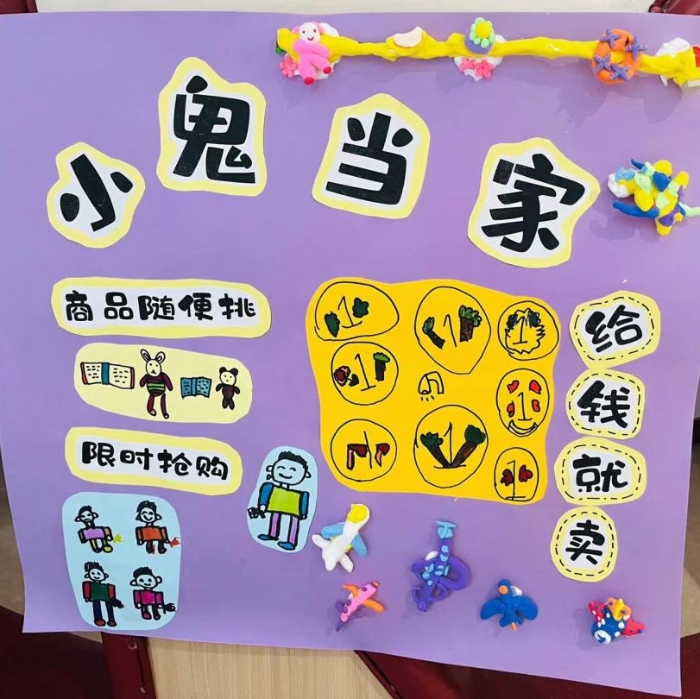 小鬼当家
商品随便挑
限时抢购
1
1
1
1
1
1
1
1
给钱就卖